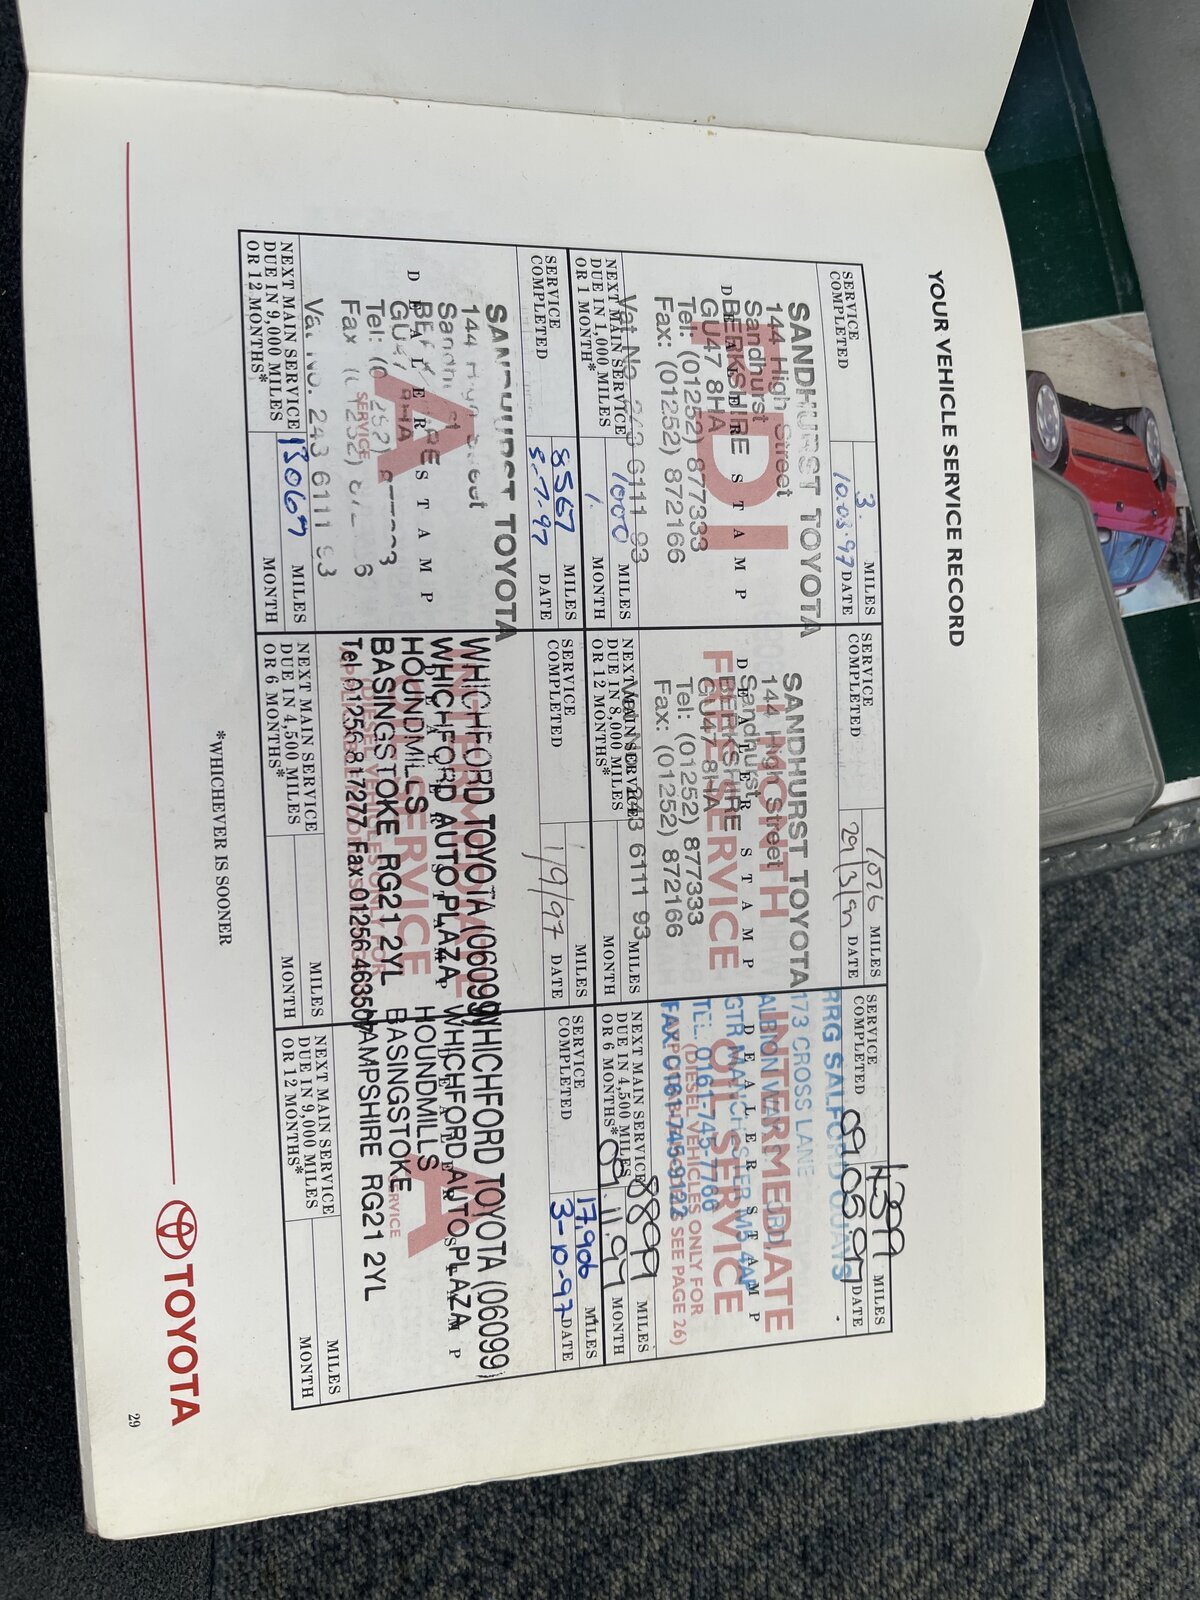 YOUR VEHICLE SERVICE RECORD
SERVICE
COMPLETED
3. MILES
10.03.97 DATE
PDI
DEALER STAMP
SANDHURST TOYOTA
144 High Street
Sandhurst
BERKSHIRE
GU47 8HA
Tel: (01252) 877333
Fax: (01252) 872166
Vat No. 243 6111 93
NEXT MAIN SERVICE
DUE IN 1,000 MILES
OR 1 MONTH*
1000 MILES
1. MONTH
SERVICE
COMPLETED
1026 MILES
29/3/97 DATE
1 MONTH
FREE SERVICE
DEALER STAMP
SANDHURST TOYOTA
144 High Street
Sandhurst
BERKSHIRE
GU47 8HA
Tel: (01252) 877333
Fax: (01252) 872166
Vat No. 243 6111 93
NEXT MAIN SERVICE
DUE IN 8,000 MILES
OR 12 MONTHS*
MILES
MONTH
SERVICE
COMPLETED
4399 MILES
09.05.97 DATE
INTERMEDIATE
OIL SERVICE
(DIESEL VEHICLES ONLY FOR
SEE PAGE 26)
DEALER STAMP
RRG SALFORD QUAYS
173 CROSS LANE
ALBION WAY
GTR MANCHESTER M5 4AP
TEL. 0161-745-7766
FAX. 0161-745-9122
NEXT MAIN SERVICE
DUE IN 4,500 MILES
OR 6 MONTHS*
8899 MILES
09.11.97 MONTH
SERVICE
COMPLETED
8567 MILES
8-7-97 DATE
A
SERVICE
DEALER STAMP
SANDHURST TOYOTA
144 High Street
Sandhurst
BERKSHIRE
GU47 8HA
Tel: (01252) 877333
Fax: (01252) 872166
Vat No. 243 6111 93
NEXT MAIN SERVICE
DUE IN 9,000 MILES
OR 12 MONTHS*
13067 MILES
MONTH
SERVICE
COMPLETED
MILES
1/9/97 DATE
INTERMEDIATE
OIL SERVICE
DEALER STAMP
WHICHFORD TOYOTA (06099)
WHICHFORD AUTO PLAZA
HOUNDMILLS
BASINGSTOKE RG21 2YL
Tel 01256 817277 Fax 01256 463507
NEXT MAIN SERVICE
DUE IN 4,500 MILES
OR 6 MONTHS*
MILES
MONTH
SERVICE
COMPLETED
17,906 MILES
3-10-97 DATE
A
SERVICE
DEALER STAMP
WHICHFORD TOYOTA (06099)
WHICHFORD AUTO PLAZA
HOUNDMILLS
BASINGSTOKE
HAMPSHIRE RG21 2YL
NEXT MAIN SERVICE
DUE IN 9,000 MILES
OR 12 MONTHS*
MILES
MONTH
*WHICHEVER IS SOONER
TOYOTA
29